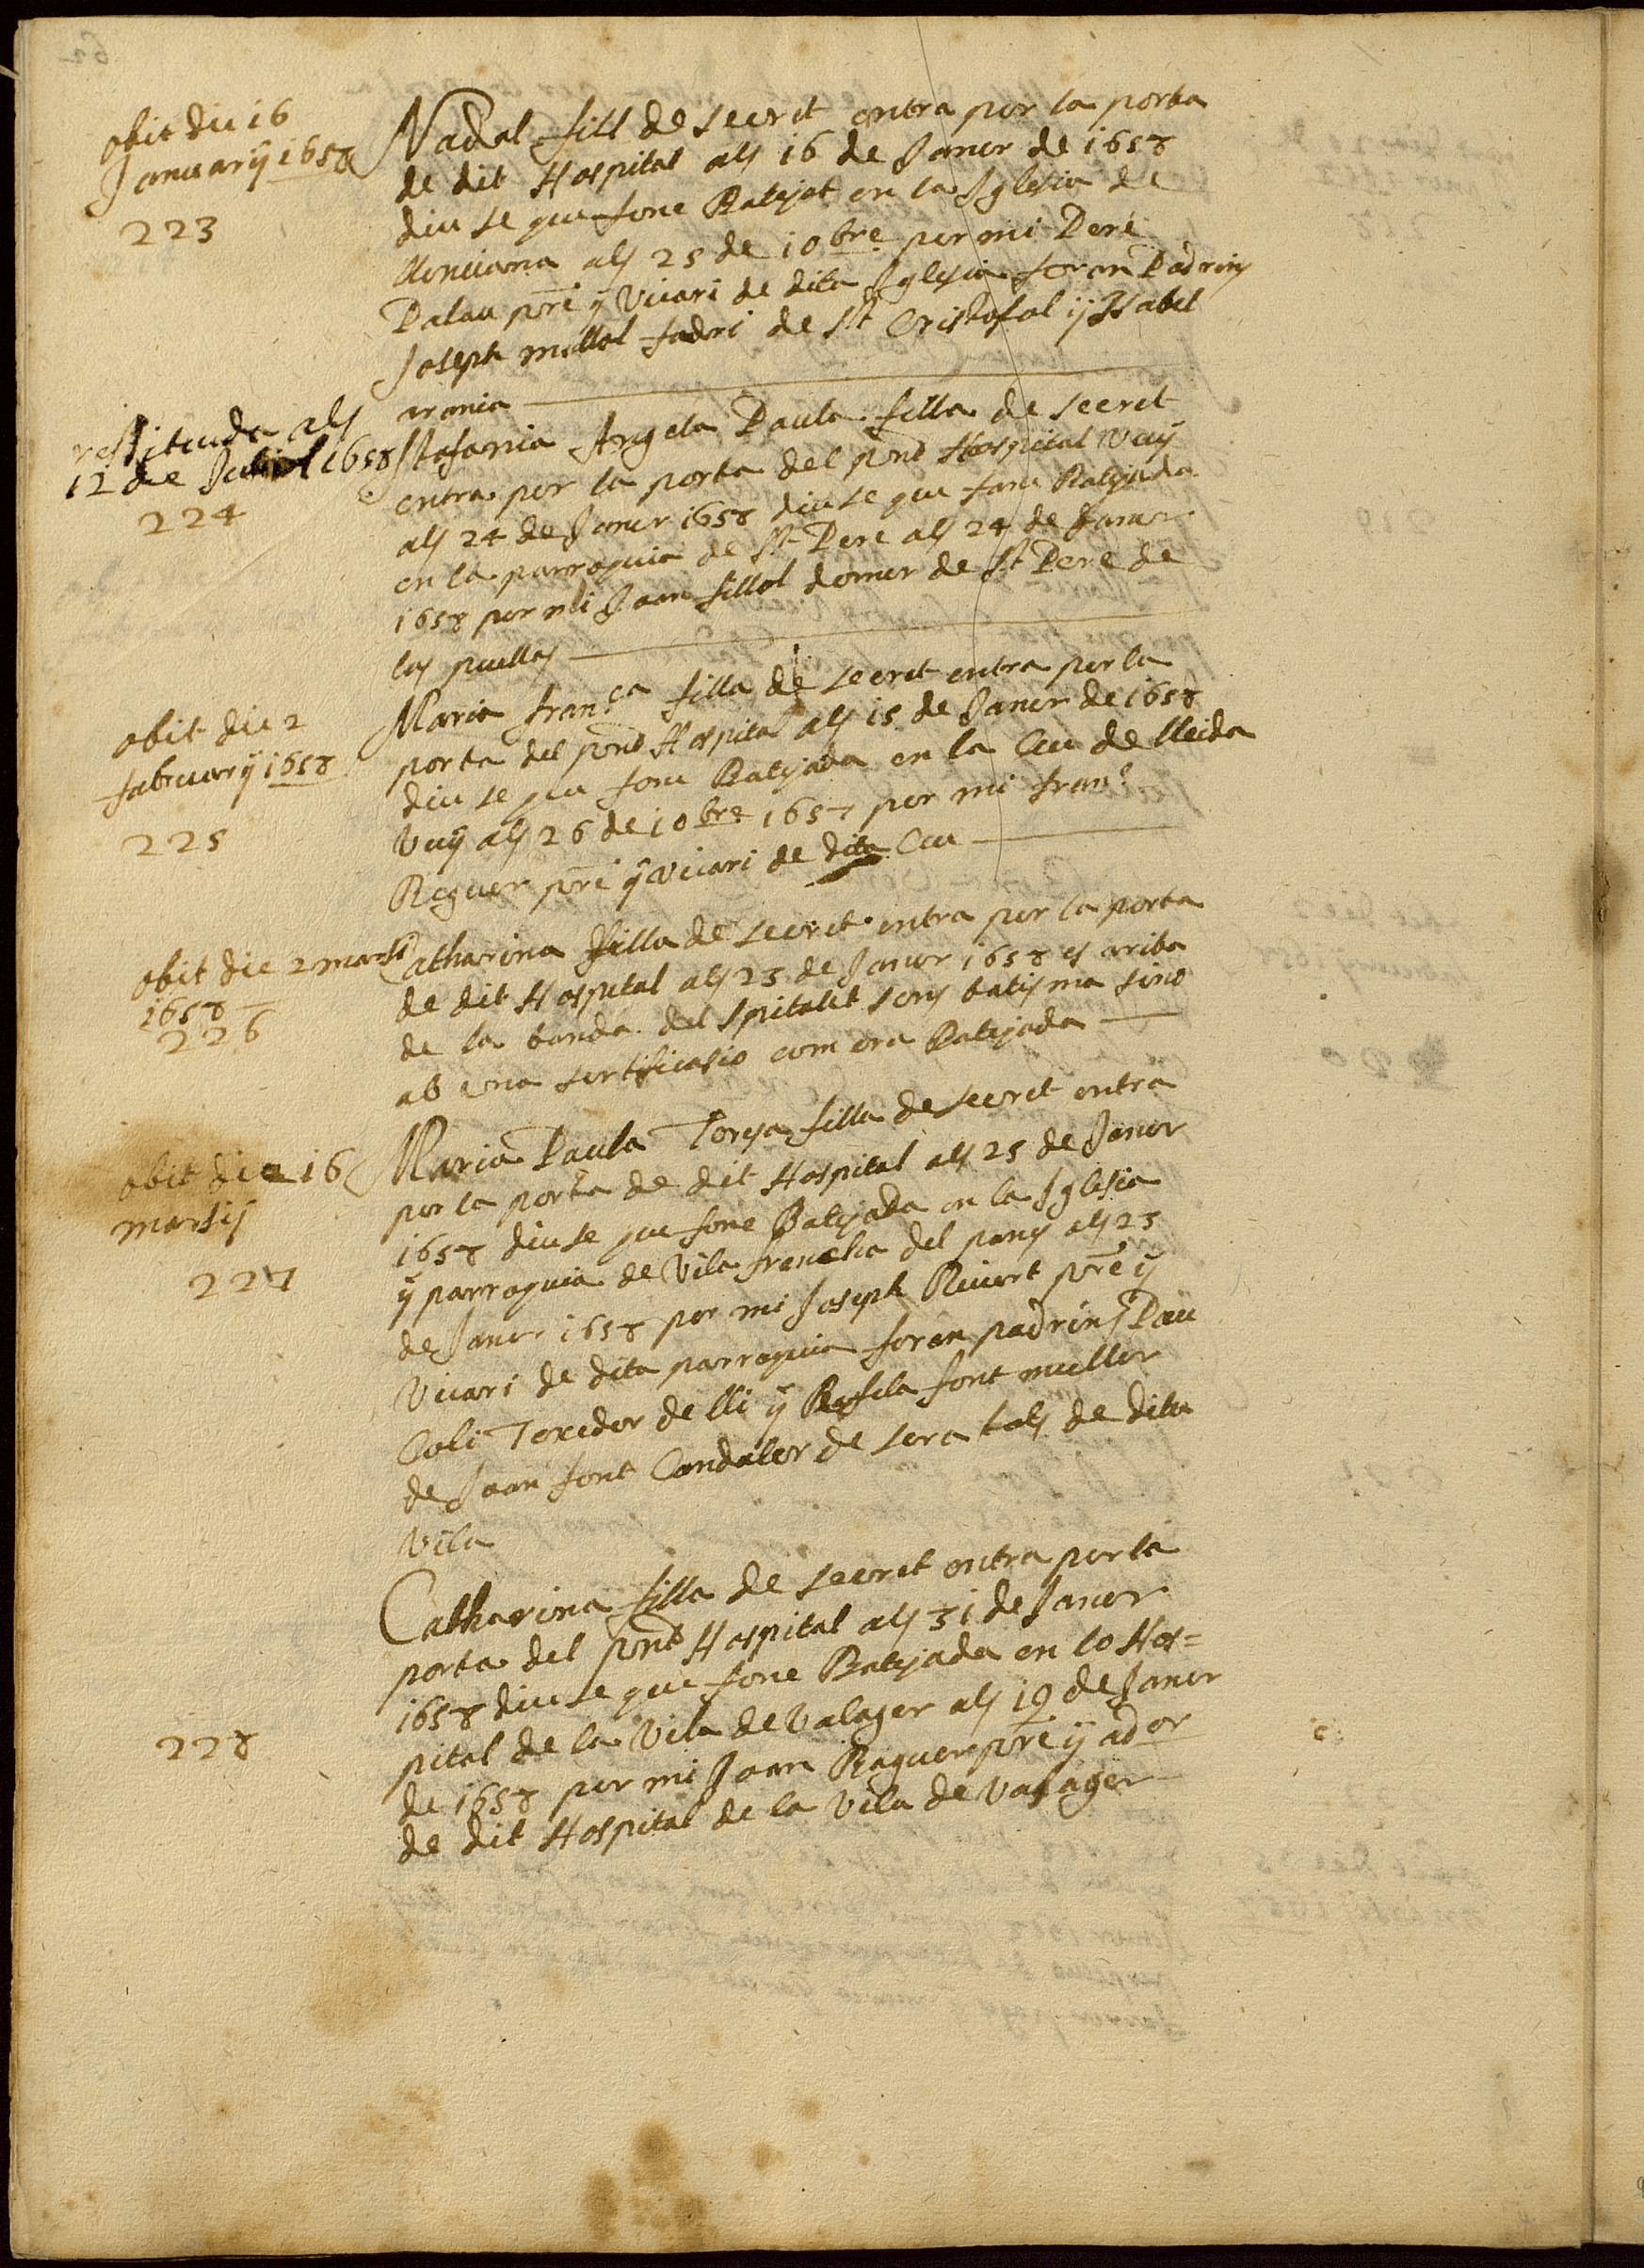 obit die 16
Januarÿ 1658
223
Nadal fill de secret entra per la porta
de dit Hospital als 16 de Janer de 1658
diu se que fonc Batejat en la Iglesia de
als 25 de 10bre per mi Pere
Palau pre ÿ Vicari de dita Iglesia foren Padrins
Joseph millol fadri de St Cristofal ÿ Isabel
arania
restituida als
12 de Juliol 1658
224
Stafania Angela Paula filla de secret
entra per la porta del pnt Hospital Vuÿ
als 24 de Janer 1658 diu se que fonc Batejada
en la parroquia de St Pere als 24 de Janer
1658 per mi Joan fillol domer de St Pere de
las puellas
obit die 2
fabruarÿ 1658
225
Maria franca filla de secret entra per la
porta del pnt Hospital als 15 de Janer de 1658
diu se que fonc Batejada en la Ceu de lleida
Vuÿ als 26 de 10bre 1657 per mi franc
Reguer pre ÿ Vicari de dita Ceu
obit die 2 marsi
1658
226
Catharina filla de secret entra per la porta
de dit Hospital als 25 de Janer 1658 es ariba
de la banda del Spitalet sens batisma sino
ab una sertificasio com era Batejada
obit die 16
marsis
227
Maria Paula Teresa filla de secret entra
per la porta de dit Hospital als 25 de Janer
1658 diu se que fonc Batejada en la Iglesia
ÿ parroquia de Vila francha del panes als 23
de Janer 1658 per mi Joseph Rivert pre ÿ
Vicari de dita parroquia foren padrins Pau
Coli Texedor de lli ÿ Rafela font muller
de Joan font Candaler de sera tots de dita
Vila
228
Catharina filla de secret entra per la
porta del pnt Hospital als 31 de Janer
1658 diu se que fonc Batejada en lo Hos=
pital de la Vila de Valager als 19 de Janer
de 1658 per mi Joan Raguer pre ÿ ador
de dit Hospital de la Vila de Valager